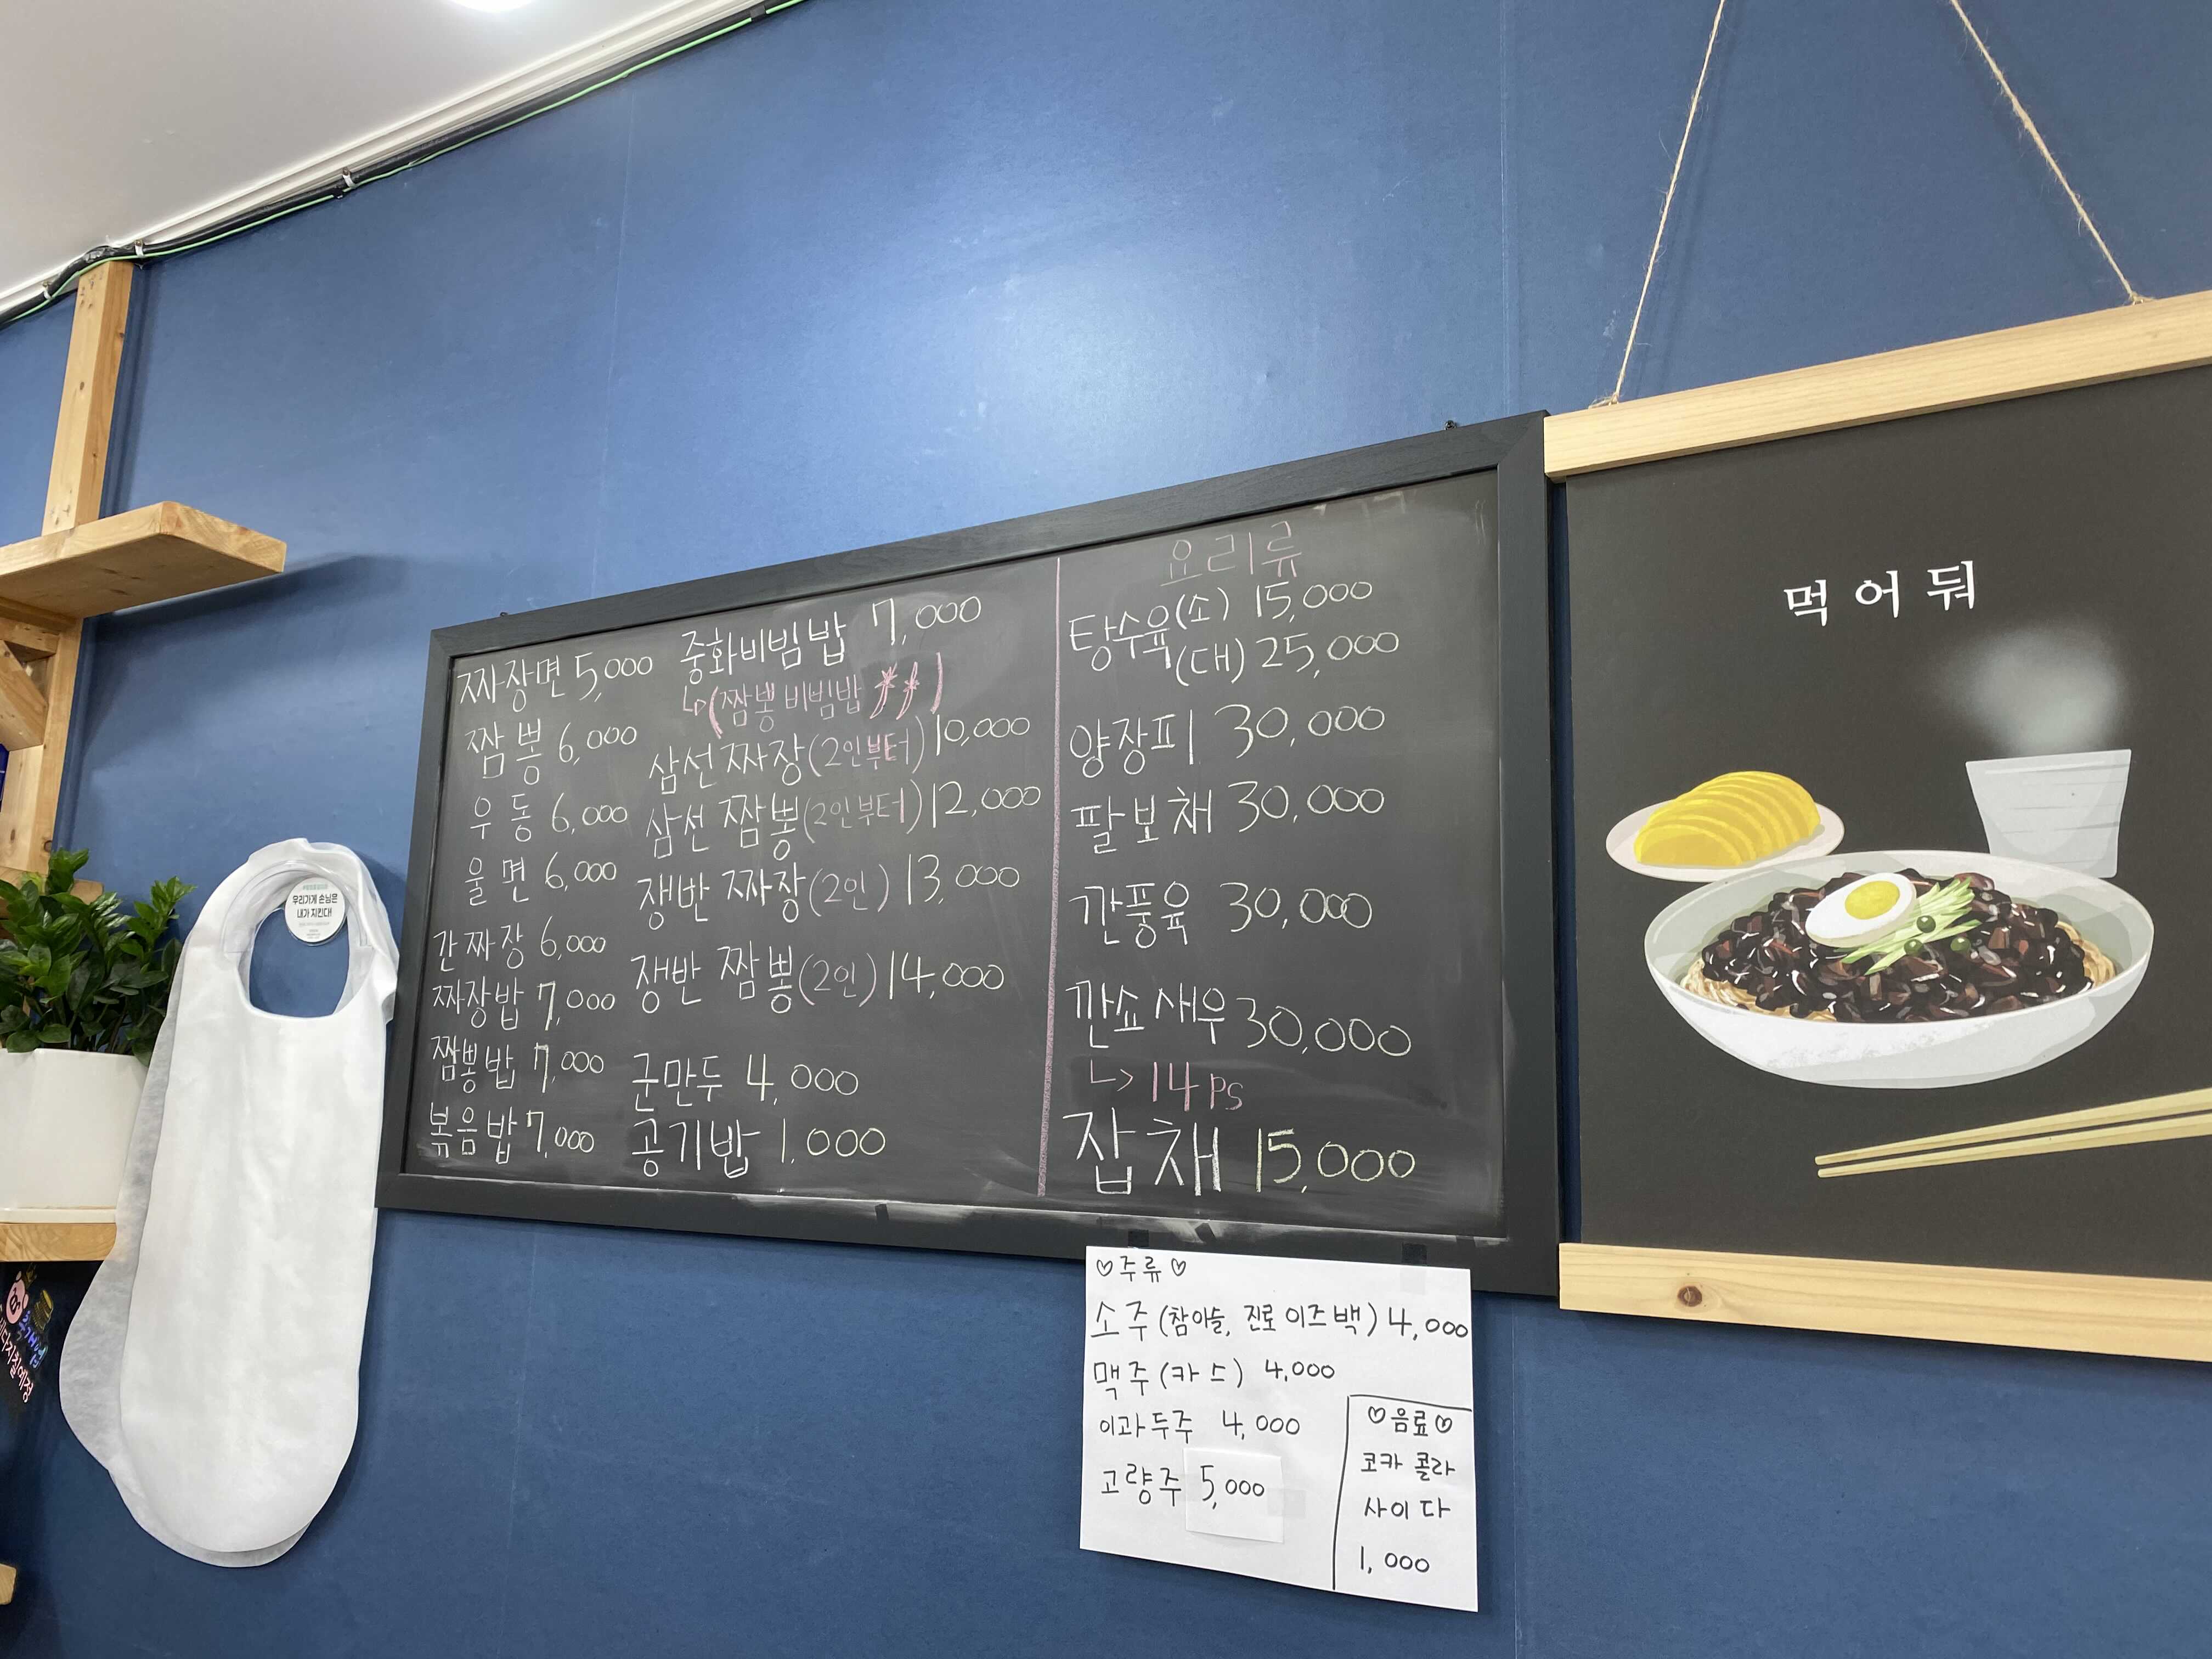 짜장면 5,000
짬뽕 6,000
우동 6,000
울면 6,000
간짜장 6,000
짜장밥 7,000
짬뽕밥 7,000
볶음밥 7,000
중화비빔밥 7,000
↳(짬뽕비빔밥)
삼선짜장(2인부터) 10,000
삼선짬뽕(2인부터) 12,000
쟁반짜장(2인) 13,000
쟁반짬뽕(2인) 14,000
군만두 4,000
공기밥 1,000
요리류
탕수육(소) 15,000
(대) 25,000
양장피 30,000
팔보채 30,000
깐풍육 30,000
깐쇼새우 30,000
↳14ps
잡채 15,000
먹어둬
♡주류♡
소주(참이슬, 진로이즈백) 4,000
맥주(카스) 4,000
이과두주 4,000
고량주 5,000
♡음료♡
코카콜라
사이다
1,000
우리가게 손님은
내가 지킨다!